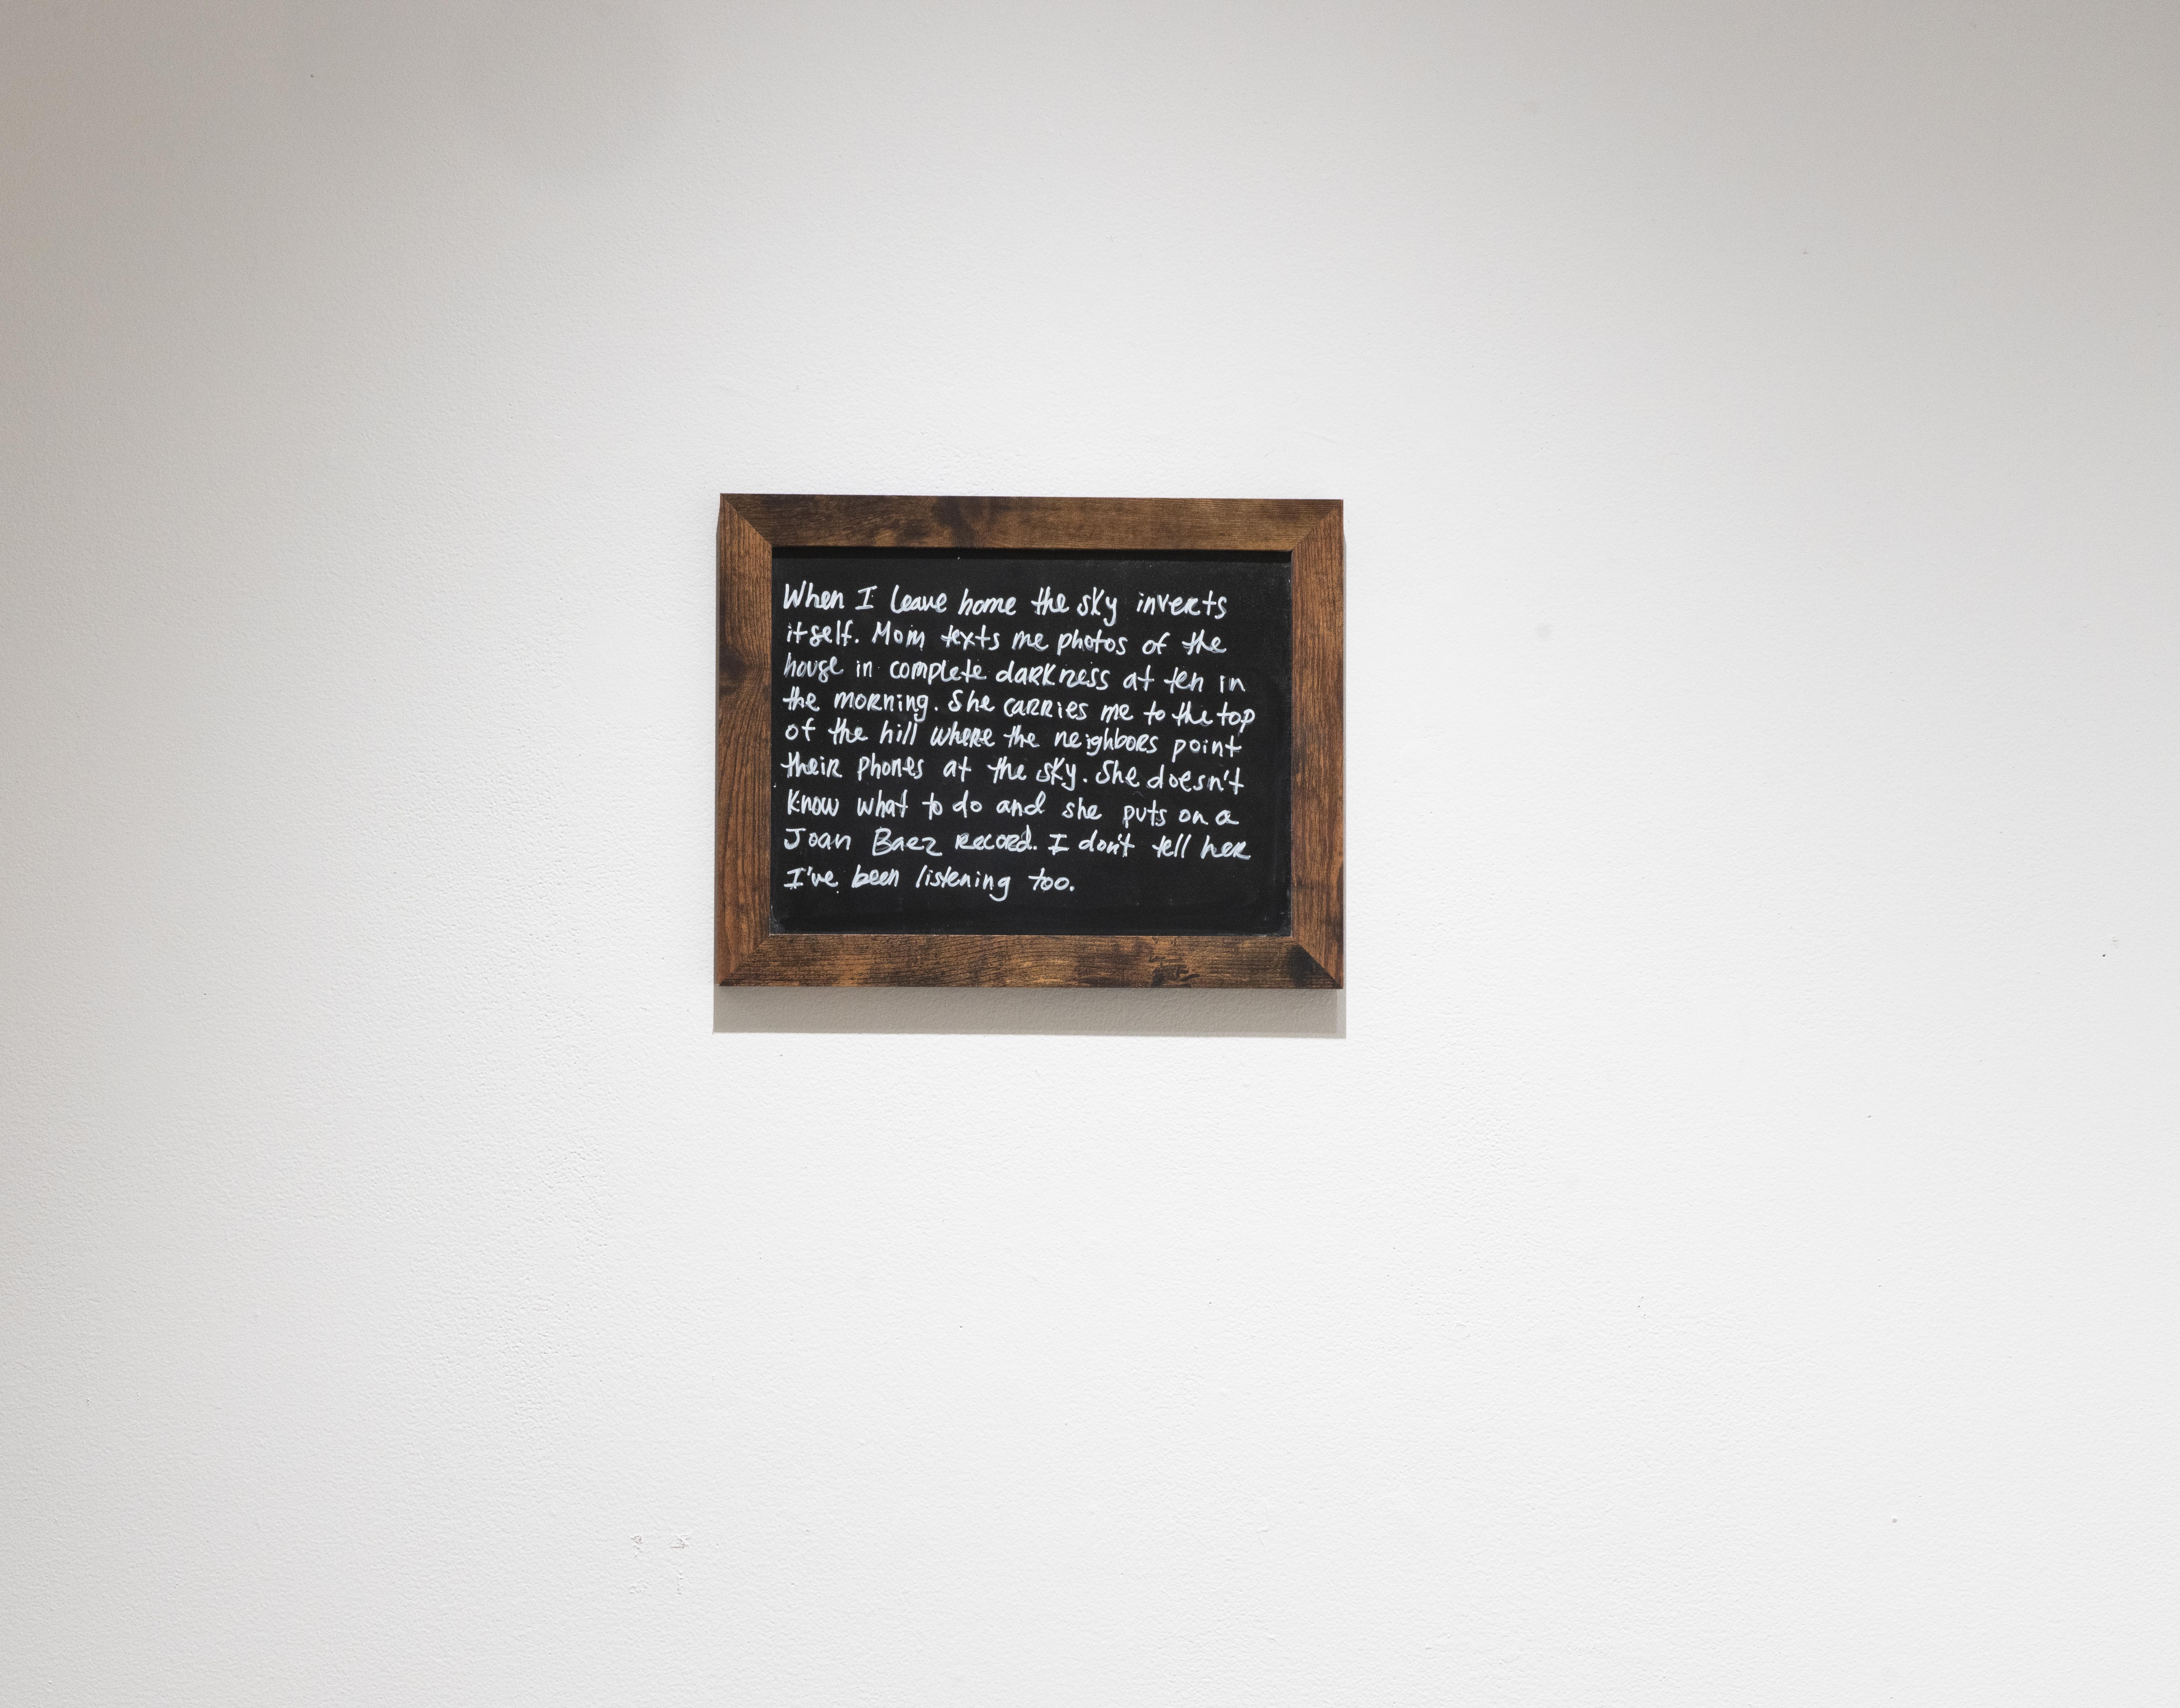 When I leave home the sky inverts
itself. Mom texts me photos of the
house in complete darkness at ten in
the morning. She carries me to the top
of the hill where the neighbors point
their phones at the sky. She doesn't
know what to do and she puts on a
Joan Baez record. I don't tell her
I've been listening too.